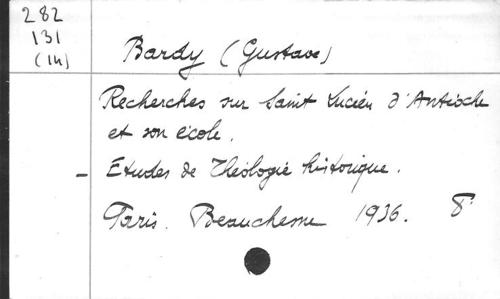 282
131
(14)
Bardy (Gustave)
Recherches sur Saint Lucien d'Antioche
et son école.
- Etudes de Théologie historique.
Paris. Beauchesne 1936. 8°